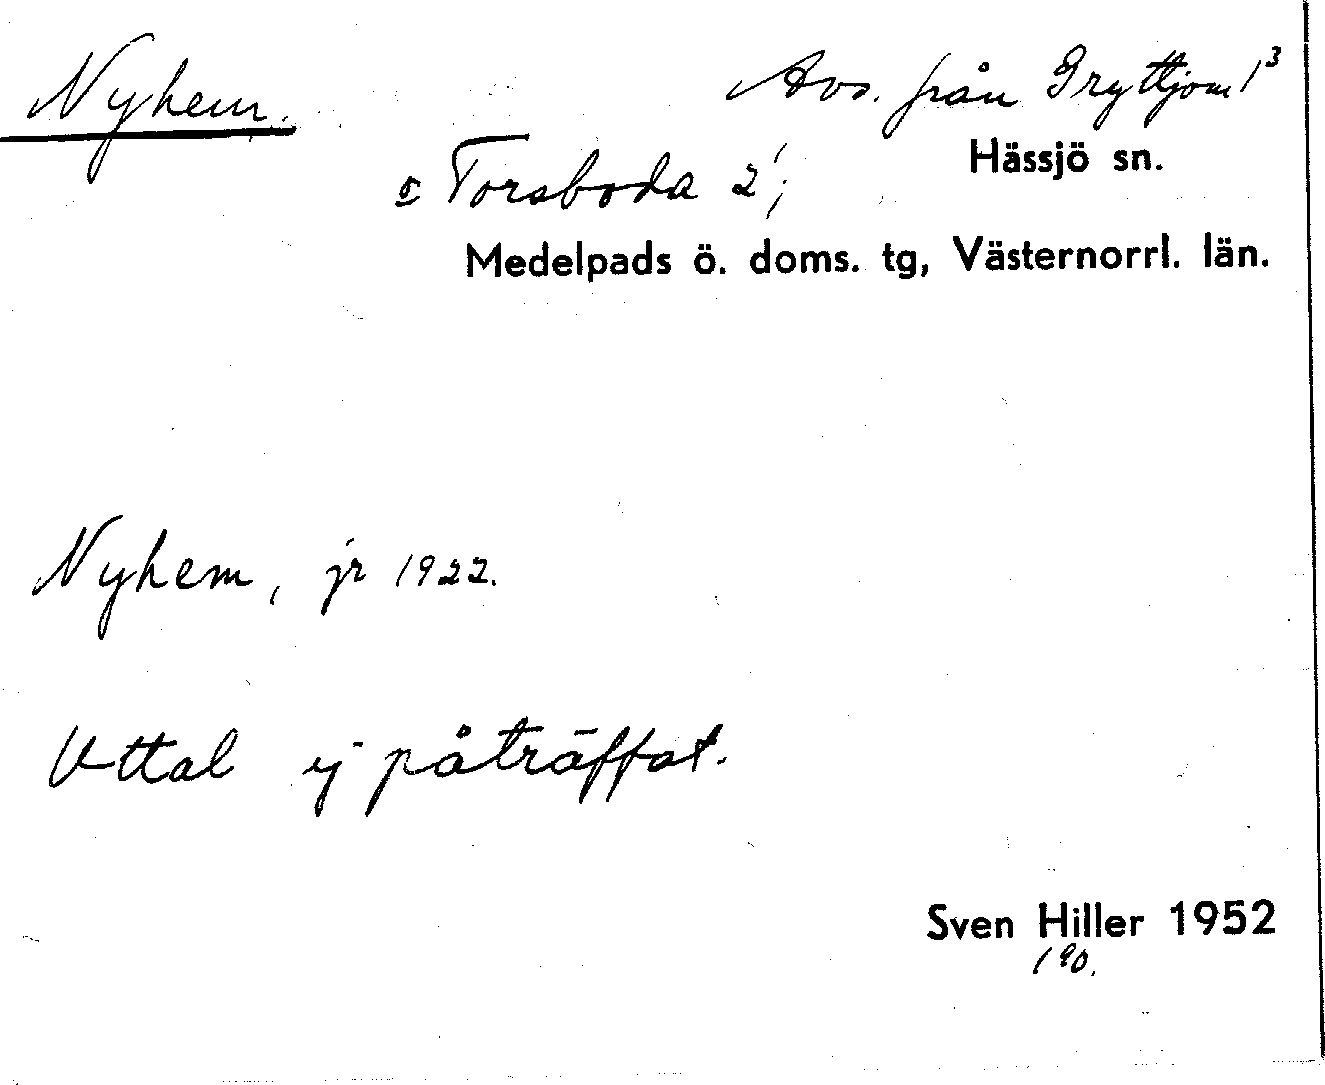 Nyhem.
Avs. från Gryttjom 1³
Hässjö sn.
o Torsboda 2¹;
Medelpads ö. doms. tg, Västernorrl. län.
Nyhem, jr 1922.
Uttal ej påträffat.
Sven Hiller 1952
190.